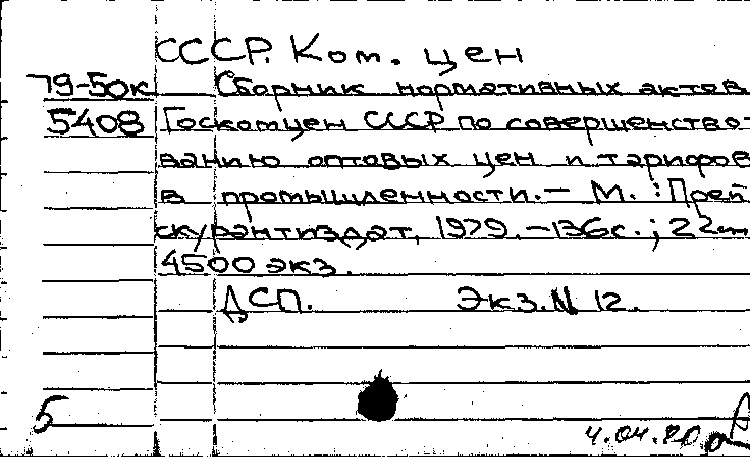 СССР. Ком. цен
79-50к Сборник нормативных актов
5408 Госкомцен СССР по совершенство-
ванию оптовых цен и тарифов
в промышленности. – М. : Прей
скурантиздат, 1979. – 136с. ; 22см
4500 экз.
ДСП. Экз. N 12.
5
4.04.80